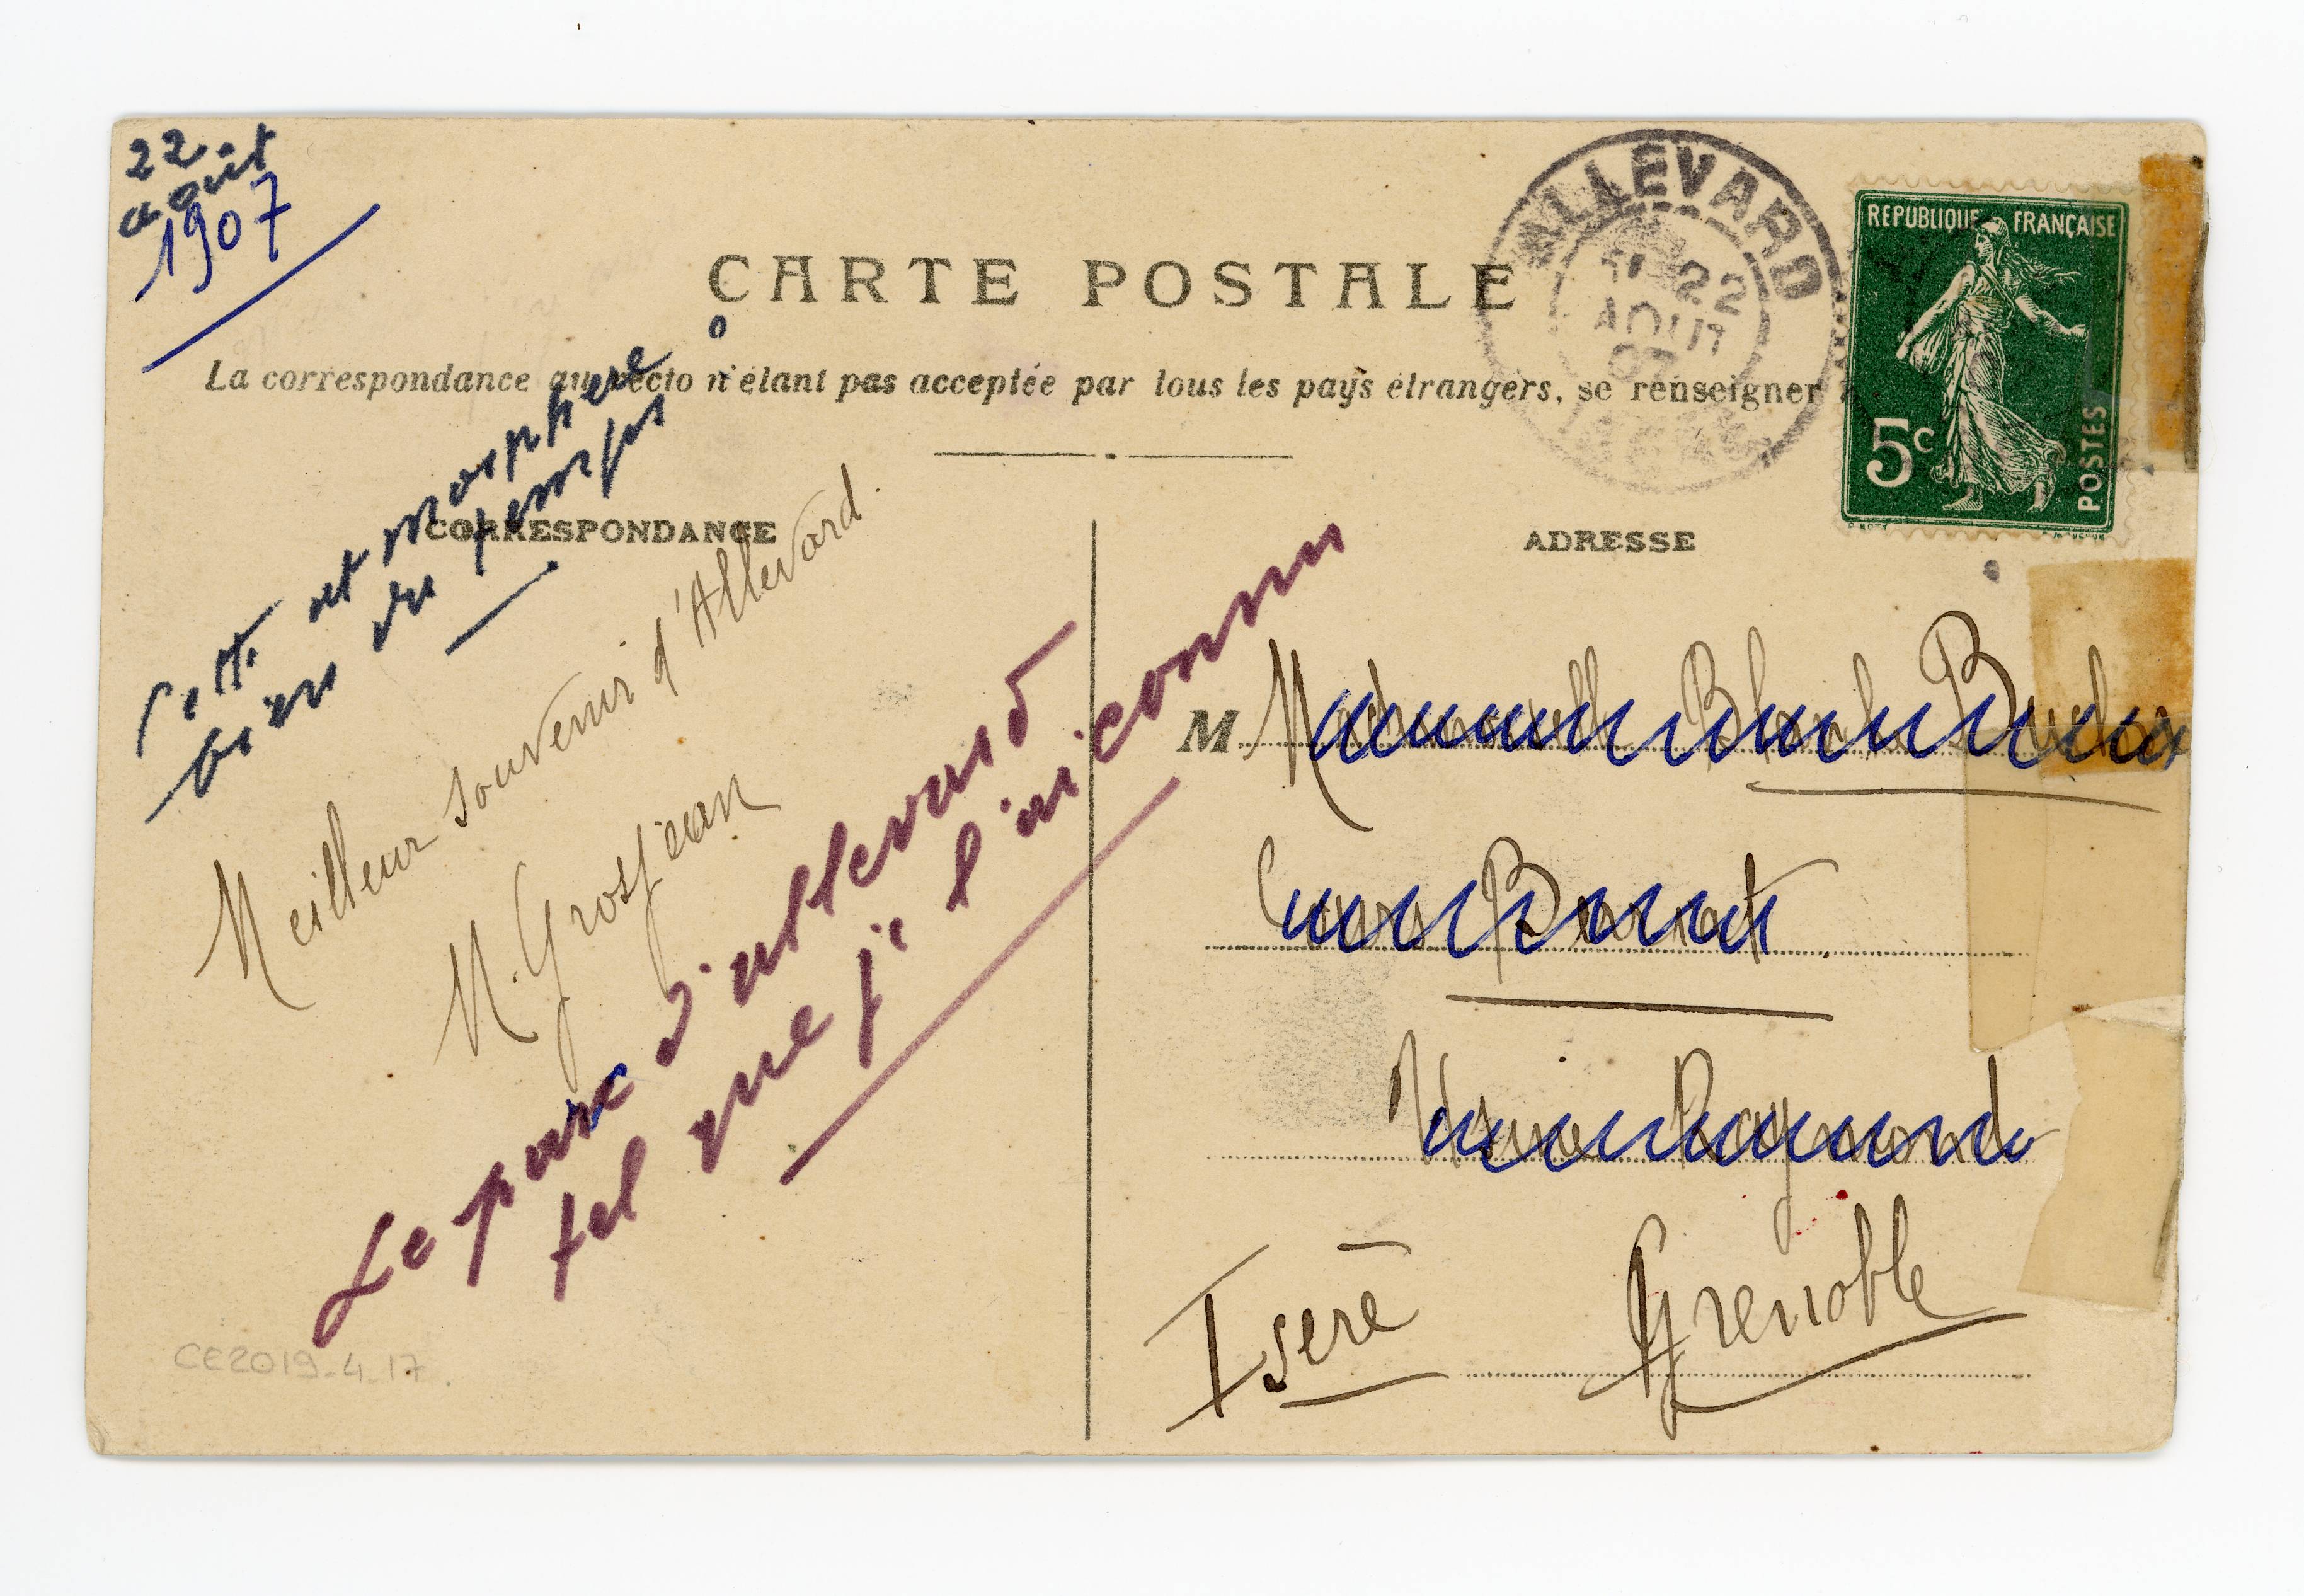 22
août
1907
CARTE POSTALE
La correspondance au recto n'étant pas acceptée par tous les pays étrangers, se renseigner
ALLEVARD
22
AOUT
07
ISERE
REPUBLIQUE FRANÇAISE
5c
POSTES
CORRESPONDANCE
ADRESSE
Cette atmosphère
bien du temps
Meilleur souvenir d'Allevard.
M. Grosjean
Le parc d'allevard
tel que je l'ai connu
M Mademoiselle Blanche
Cours Berriat
Usine Raymond
Grenoble
Isère
CE2019-4-17.